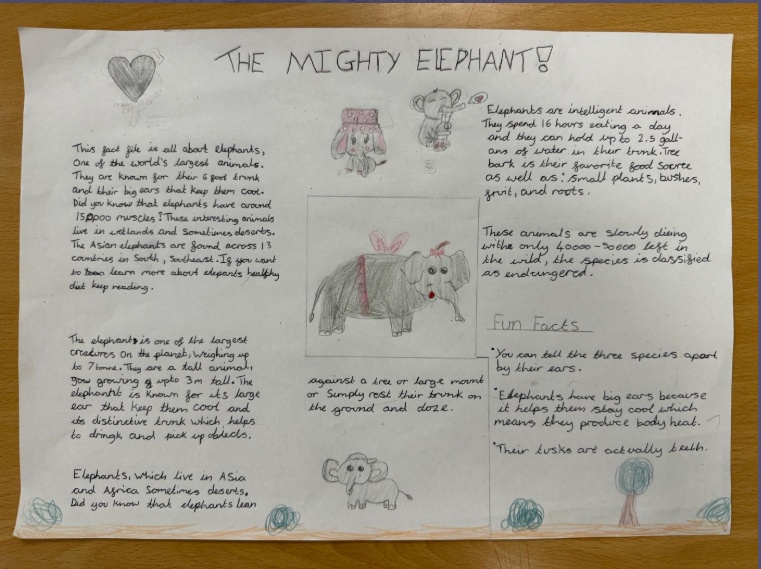 THE MIGHTY ELEPHANT!
This fact file is all about elephants,
One of the world's largest animals.
They are known for their 6 foot trunk
and their big ears that keep them cool.
Did you know that elephants have around
150000 muscles? These interesting animals
live in wetlands and sometimes deserts.
The Asian elephants are found across 13
countries in South, Southeast. If you want
to learn more about elepants healthy
diet keep reading.
The elephant is one of the largest
creatures on the planet, weighing up
to 7 tonne. They are a tall animal,
growing upto 3m tall. The
elephant is known for its large
ear that keep them cool and
its distinctive trunk which helps
to dringk and pick up objects.
Elephants, which live in ASia
and Africa Sometimes deserts.
Did you know that elephants lean
against a tree or large mount
or simply rest their trunk on
the ground and doze.
Elephants are intelligent animals.
They spend 16 hours eating a day
and they can hold up to 2.5 gall-
ans of water in their trunk. Tree
bark is their favorite food source
as well as: small plants, bushes,
fruit, and roots.
These animals are slowly dieing
with only 40000-50000 left in
the wild, the species is classified
as endungered.
Fun Facts
•You can tell the three species apart
by their ears.
•Elephants have big ears because
it helps them stay cool which
means they produce body heat.
•Their tusks are actually teeth.